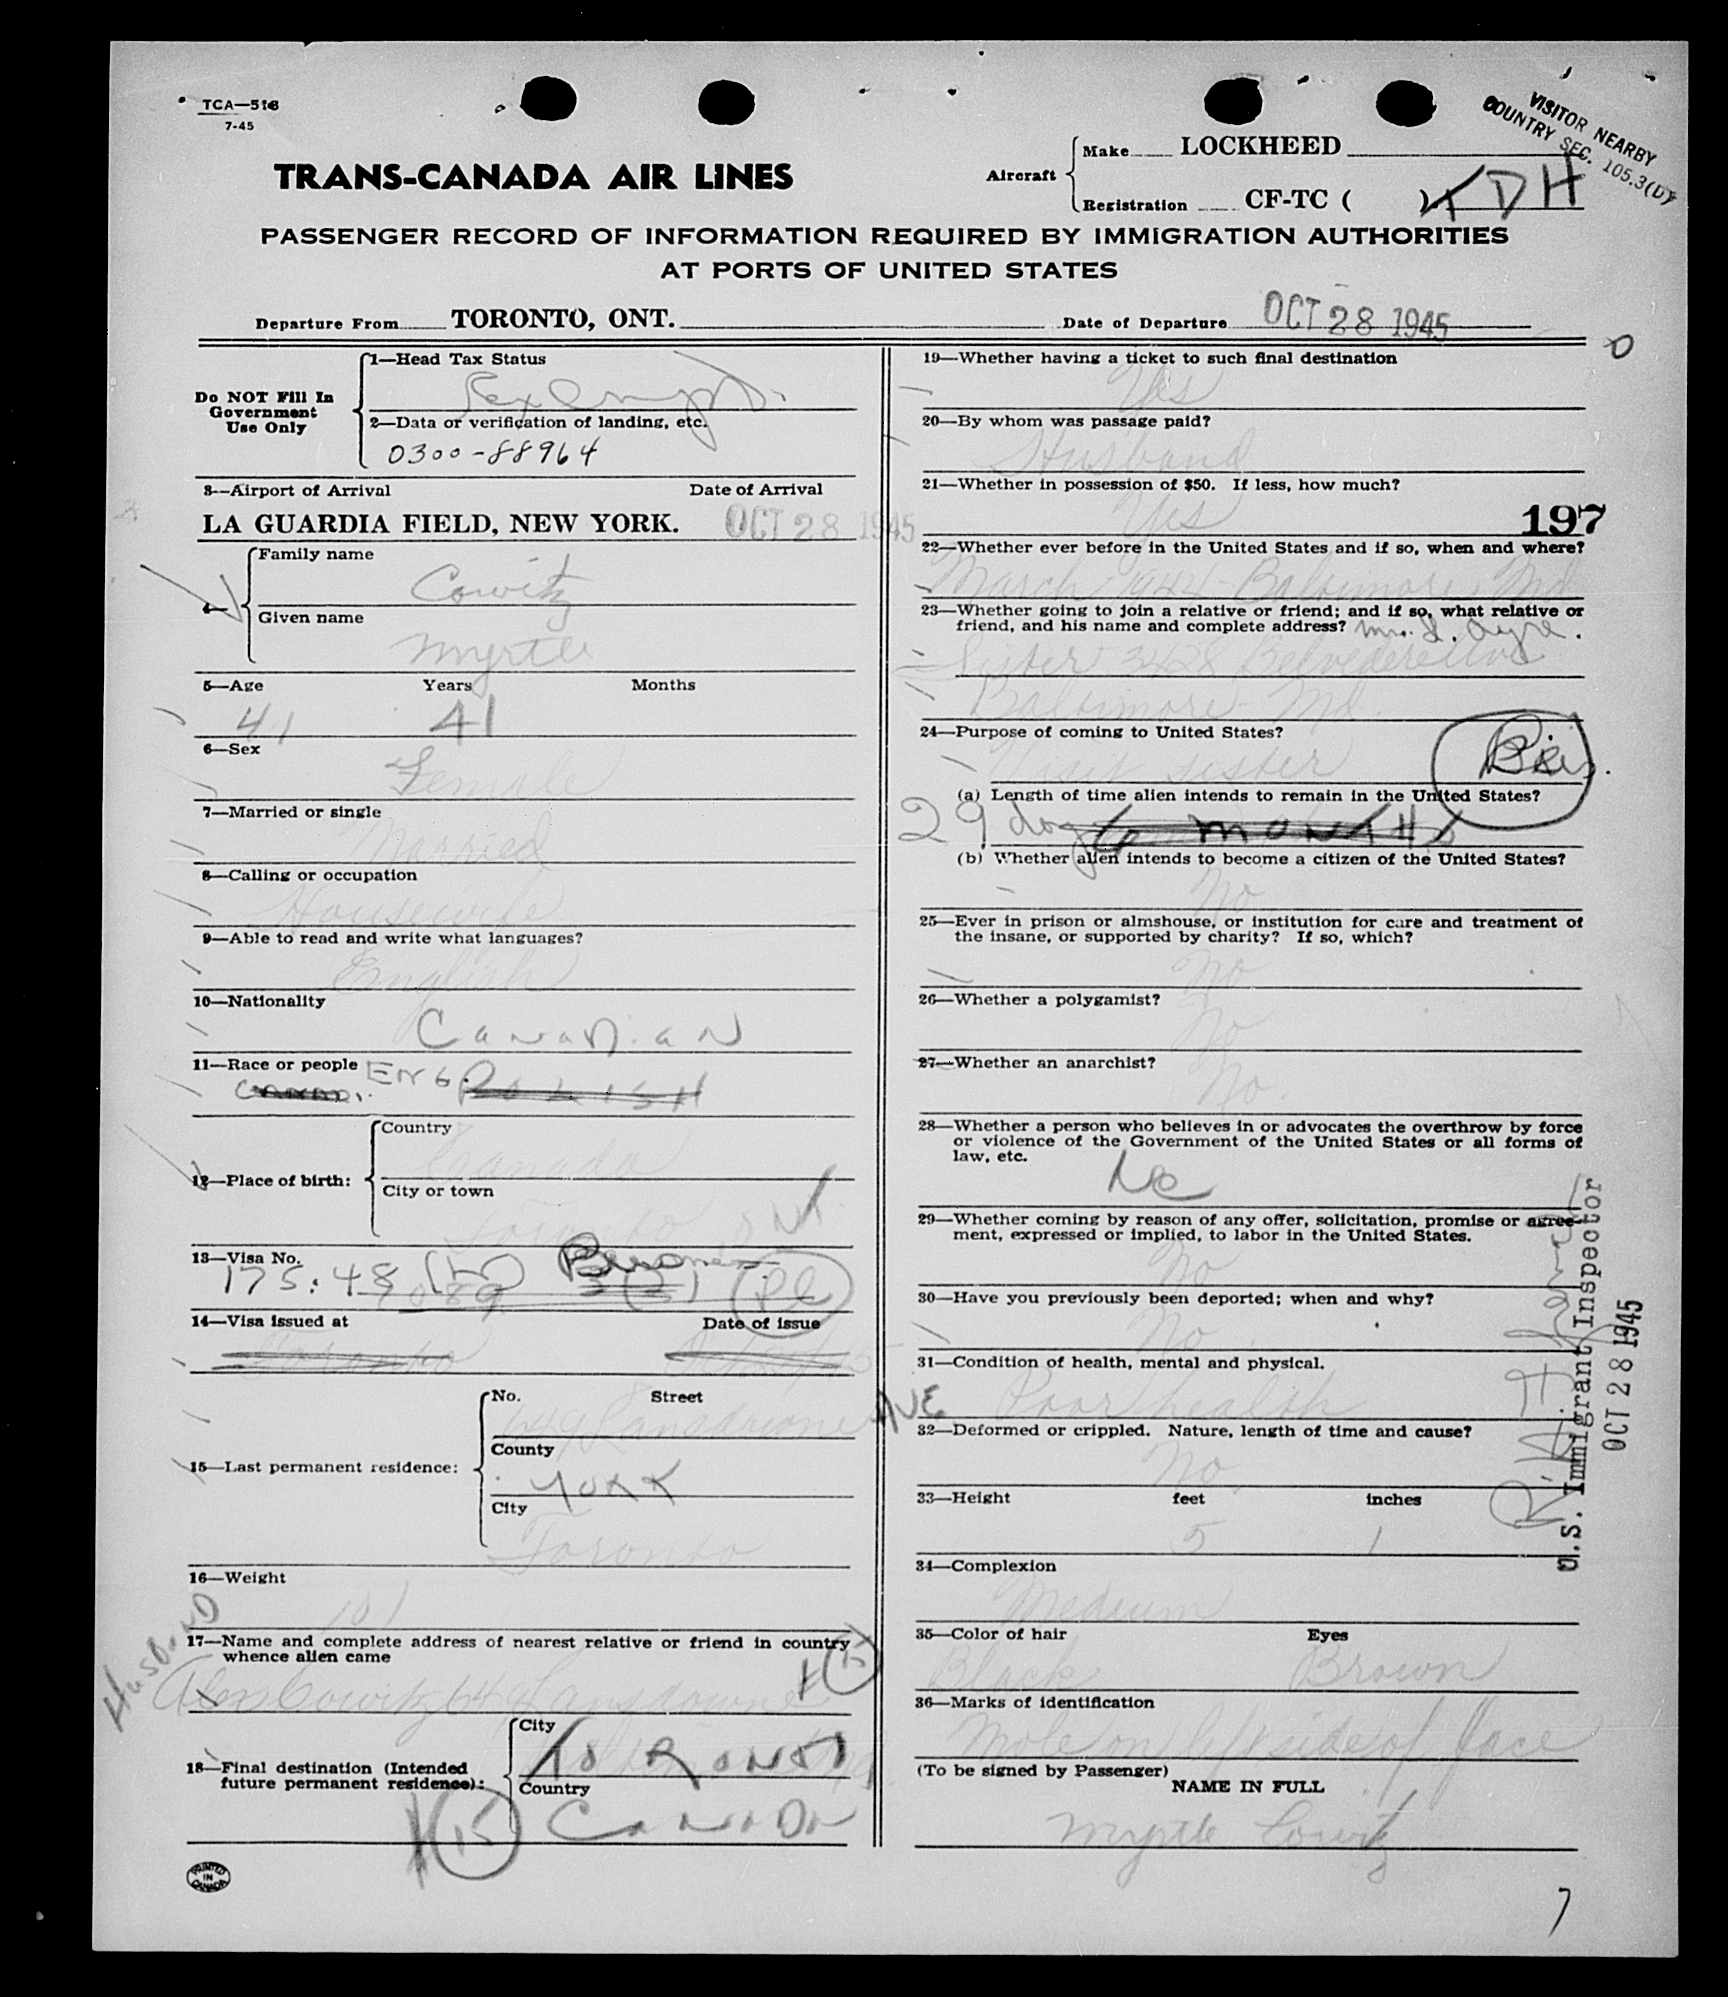 TCA—518
7-45
VISITOR NEARBY
COUNTRY SEC. 105.3(D)
TRANS-CANADA AIR LINES
Aircraft
Make LOCKHEED
Registration CF-TC ( ) TDH
PASSENGER RECORD OF INFORMATION REQUIRED BY IMMIGRATION AUTHORITIES
AT PORTS OF UNITED STATES
Departure From TORONTO, ONT. Date of Departure OCT 28 1945
0
Do NOT Fill In
Government
Use Only
1—Head Tax Status
Exempt
2—Data or verification of landing, etc.
0300-88964
3—Airport of Arrival Date of Arrival
LA GUARDIA FIELD, NEW YORK. OCT 28 1945
4—
Family name
Cowitz
Given name
Myrtle
5—Age Years Months
41 41
6—Sex
Female
7—Married or single
Married
8—Calling or occupation
Housewife
9—Able to read and write what languages?
English
10—Nationality
Canadian
11—Race or people ENG.
POLISH
12—Place of birth:
Country
Canada
City or town
Toronto ONT
13—Visa No.
175:48
14—Visa issued at Date of issue
Toronto
15—Last permanent residence:
No. Street
649 Lansdowne AVE
County
YORK
City
Toronto
16—Weight
101
HUSBAND
17—Name and complete address of nearest relative or friend in country
whence alien came
Cowitz 649 Lansdowne
18—Final destination (Intended
future permanent residence):
City
TORONTO
Country
CANADA
(15)
PRINTED
IN
CANADA
19—Whether having a ticket to such final destination
Yes
20—By whom was passage paid?
Husband
21—Whether in possession of $50. If less, how much?
Yes
197
22—Whether ever before in the United States and if so, when and where?
March 1944 - Baltimore, Md
23—Whether going to join a relative or friend; and if so, what relative or
friend, and his name and complete address? Mrs. I. Ayre.
Sister 3428 Belvedere Ave
Baltimore - Md.
24—Purpose of coming to United States?
Visit sister
(a) Length of time alien intends to remain in the United States?
29 days 6 MONTHS
(b) Whether alien intends to become a citizen of the United States?
No
25—Ever in prison or almshouse, or institution for care and treatment of
the insane, or supported by charity? If so, which?
No
26—Whether a polygamist?
No
27—Whether an anarchist?
No.
28—Whether a person who believes in or advocates the overthrow by force
or violence of the Government of the United States or all forms of
law, etc.
No
29—Whether coming by reason of any offer, solicitation, promise or agree-
ment, expressed or implied, to labor in the United States.
No
30—Have you previously been deported; when and why?
No
31—Condition of health, mental and physical.
Poor health
32—Deformed or crippled. Nature, length of time and cause?
No
33—Height feet inches
5 1
34—Complexion
Medium
35—Color of hair Eyes
Black Brown
36—Marks of identification
Mole on left side of face
(To be signed by Passenger)
NAME IN FULL
Myrtle Cowitz
U.S. Immigrant Inspector
OCT 28 1945
7